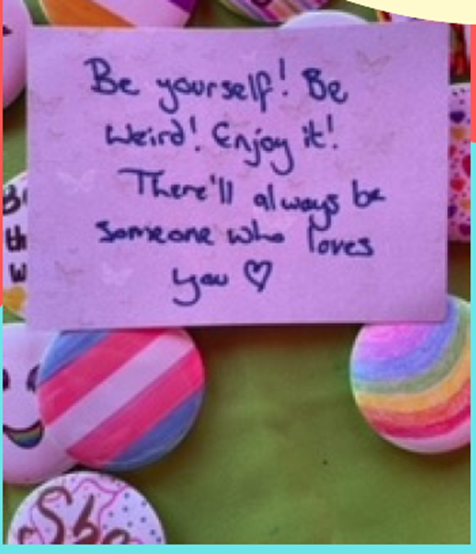 Be yourself! Be
Weird! Enjoy it!
There'll always be
someone who loves
you ♡